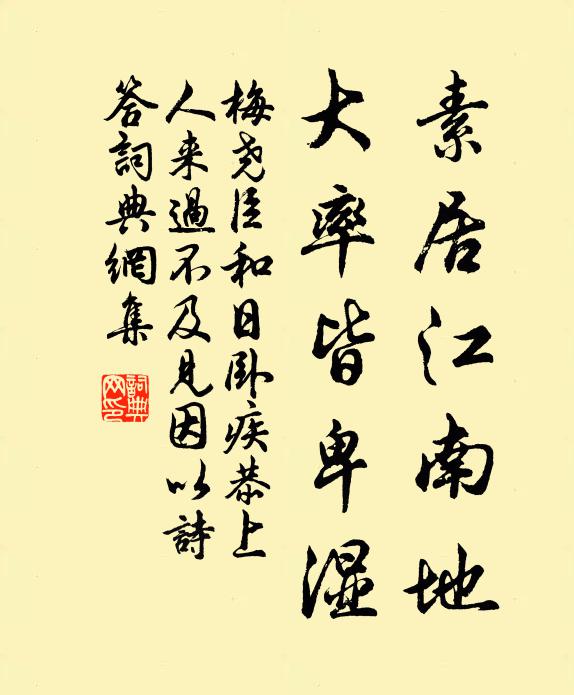 素居江南地
大率皆卑湿
梅尧臣和日卧疾恭上
人来過不及見因以詩
答詞典網集
詞典
网印